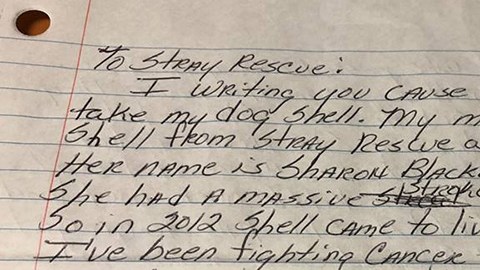 To Stray Rescue:
I writing you cause
take my dog Shell. My m
Shell from Stray Rescue a
Her name is Sharon Black
She had a massive Stroke
So in 2012 Shell came to liv
I've been fighting Cancer